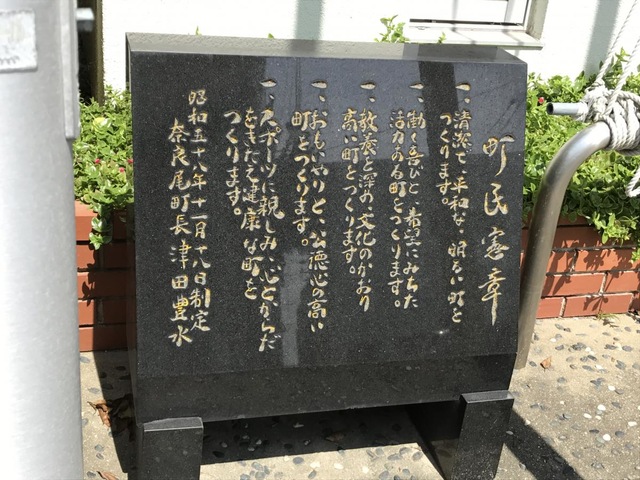 町民憲章
一、清潔で、平和な、明るい町を
つくります。
一、働く喜びと、希望にみちた
活力のある町をつくります。
一、教養を深め、文化のかおり
高い町をつくります。
一、おもいやりと、公徳心の高い
町をつくります。
一、スポーツに親しみ、心とからだ
をきたえ健康な町を
つくります。
昭和五十八年十一月十八日制定
奈良尾町長 津田豊水